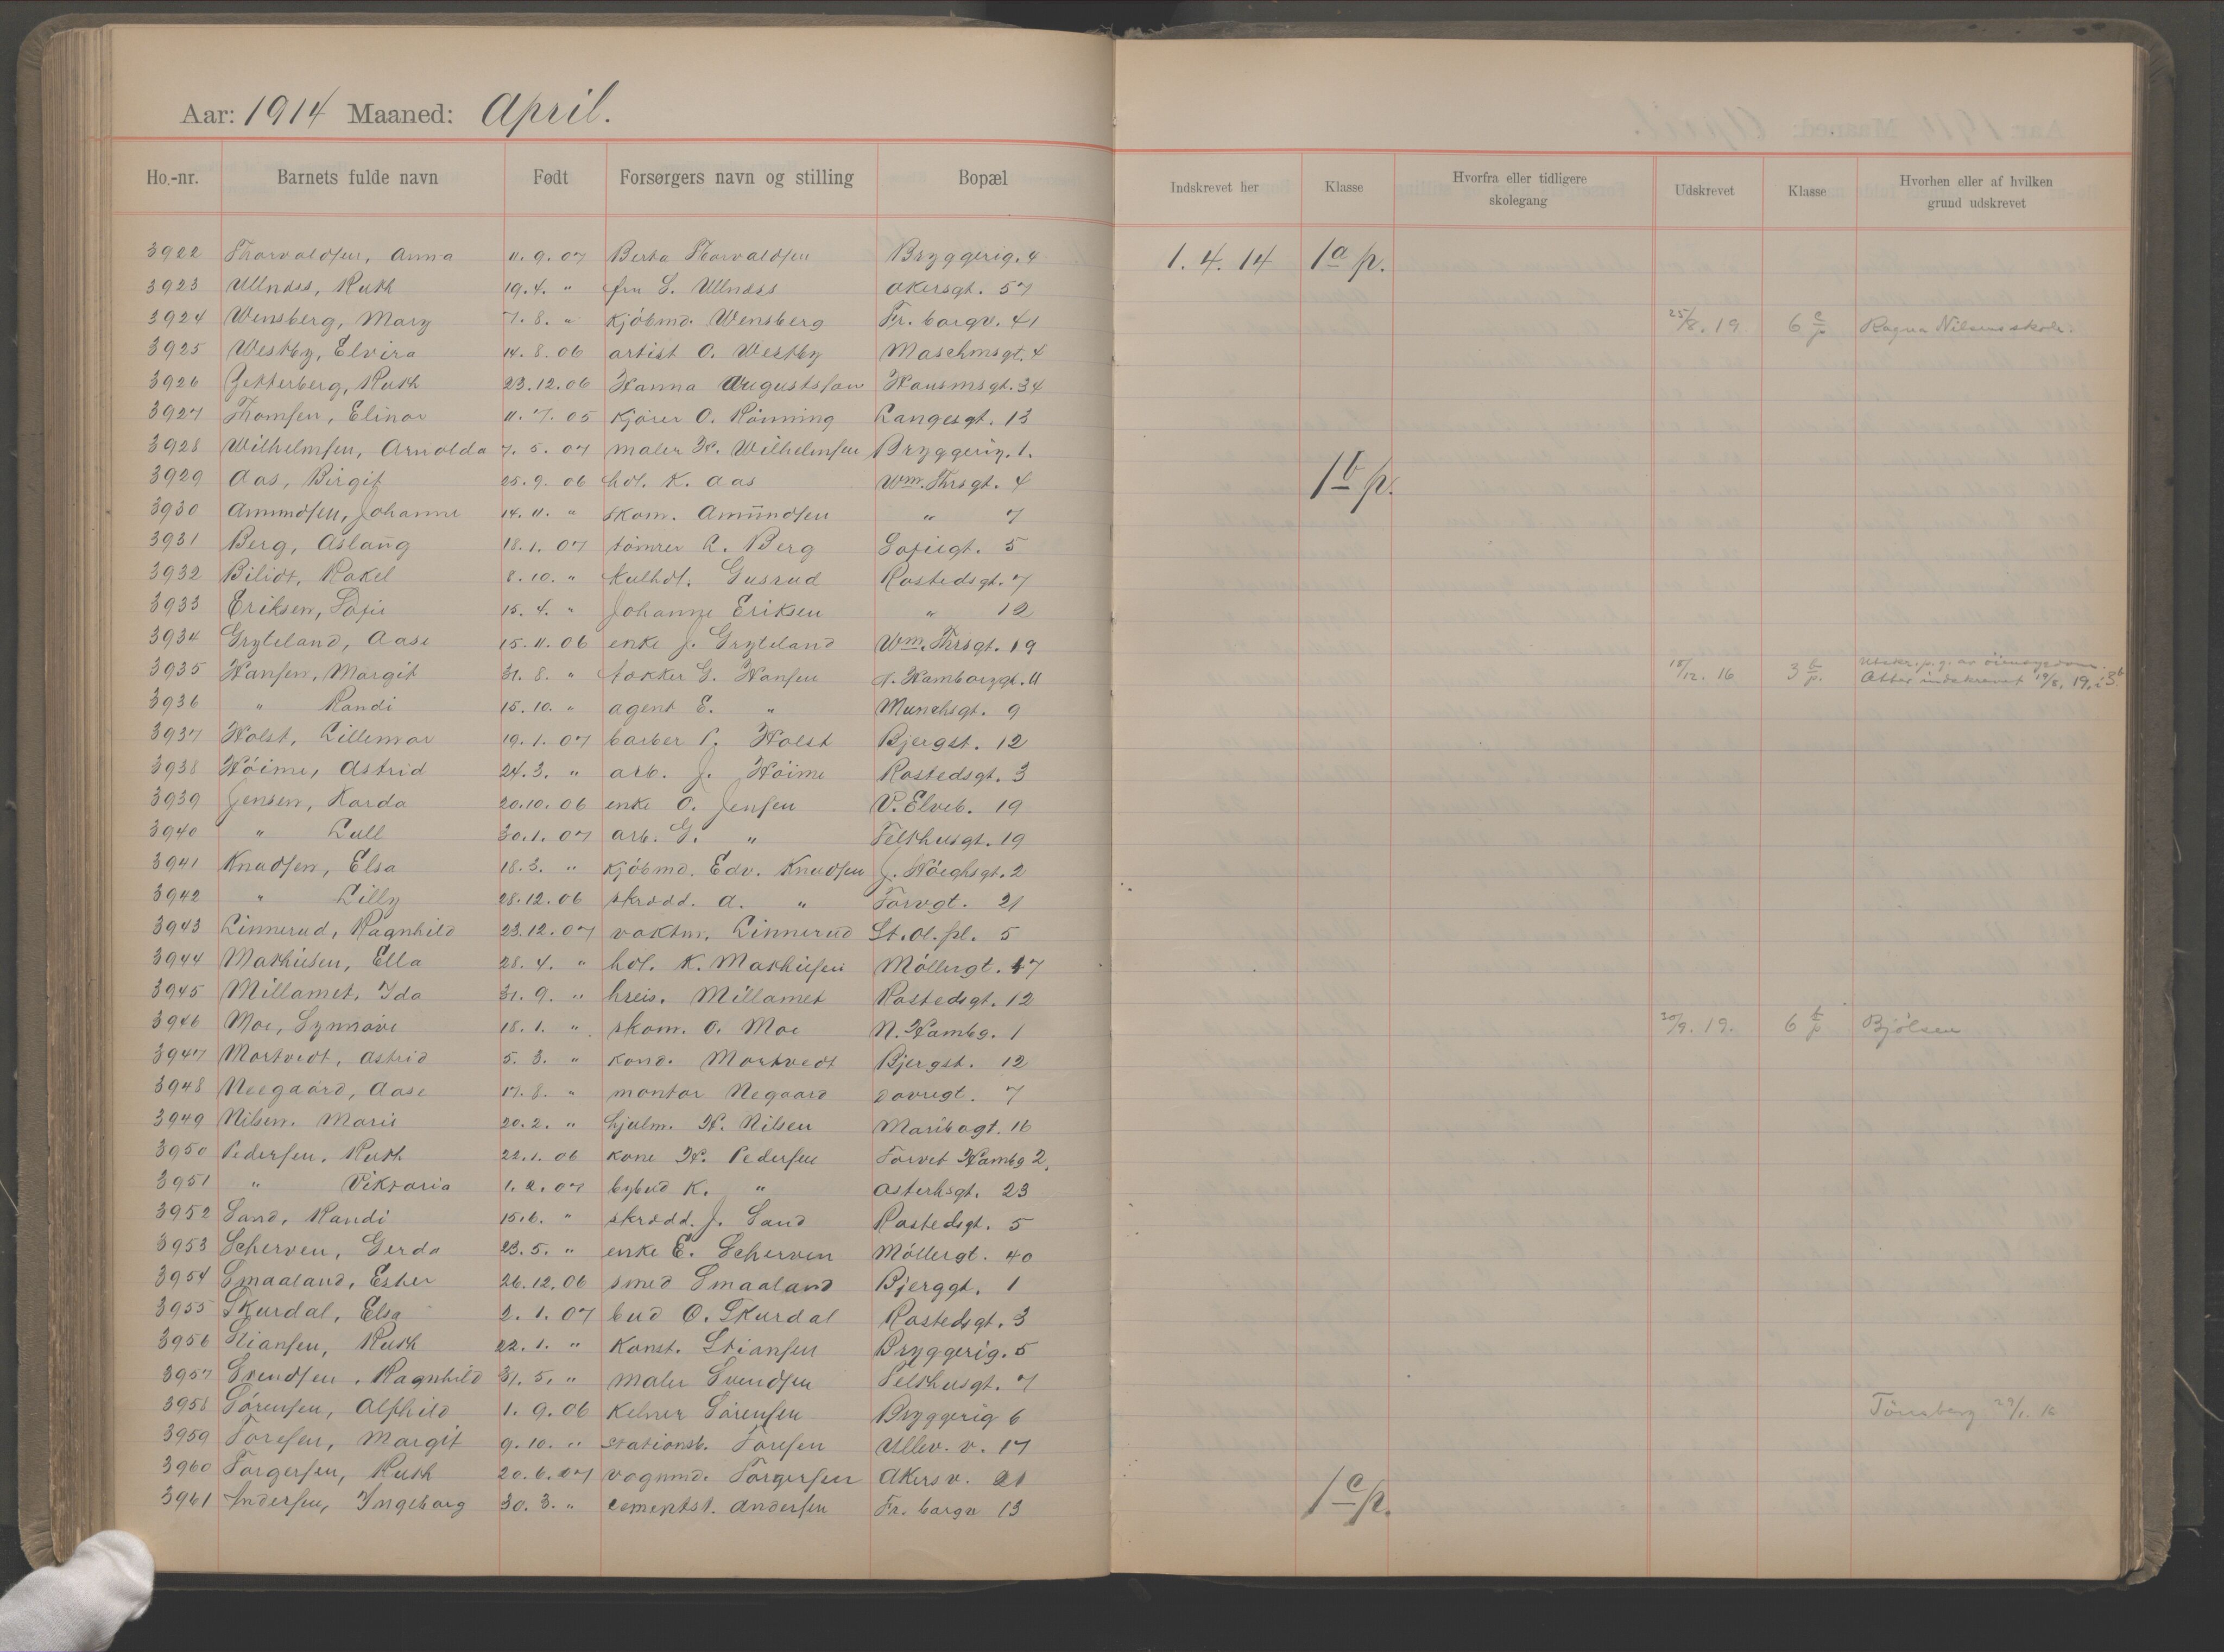 Aar: 1914 Maaned: April.
Ho.-nr. Barnets fulde navn Født Forsørgers navn og stilling Bopæl Indskrevet her Klasse Hvorfra eller tidligere skolegang Udskrevet Klasse Hvorhen eller af hvilken grund udskrevet
3922 Thorvaldsen, Anna 11. 9. 07 Berta Thorvaldsen Bryggerig. 4 1. 4. 14 1a p.
3923 Ullnæss, Ruth 19. 4. " fru S. Ullnæss Akersgt. 57
3924 Wensberg, Mary 7. 8. " Kjöbmd. Wensberg Fr. borgv. 41 25/8. 19 6 e p Ragna Nilsens skole.
3925 Westby, Elvira 14. 8. 06 artist O. Westby Maschmsgt. 4
3926 Zetterberg, Ruth 23. 12. 06 Hanna Augustsson Hausmsgt. 34
3927 Thomsen, Elinor 11. 7. 05 Kjörer O. Rönning Langesgt. 13
3928 Wilhelmsen, Arnolda 7. 5. 07 maler H. Wilhelmsen Bryggerig. 1.
3929 Aas, Birgit 25. 9. 06 hdl. K. Aas Wm. Thrsgt. 4 1b p.
3930 Amundsen, Johanne 14. 11. " skom. Amundsen " 7
3931 Berg, Aslaug 18. 1. 07 tömrer L. Berg Sofiegt. 5
3932 Bilidt, Rakel 8. 10. " kulhdl. Gusrud Rostedsgt. 7
3933 Eriksen, Sofie 15. 4. " Johanne Eriksen " 12
3934 Gryteland, Aase 15. 11. 06 enke J. Gryteland Wm. Thrsgt. 19
3935 Hansen, Margit 31. 8. " tokker G. Hansen N. Hamborggt. 11 15/12. 16 3 b p. Utskr. p. g. av öiensygdom.
Atter indskrevet 19/8. 19. i 3b
3936 " Randi 15. 10. " agent E. " Munchsgt. 9
3937 Holst, Lillemor 19. 1. 07 barber P. Holst Bjergst. 12
3938 Höime, Astrid 24. 3. " arb. J. Höime Rostedsgt. 3
3939 Jensen, Karda 20. 10. 06 enke O. Jensen V. Elveb. 19
3940 " Lull 30. 1. 07 arb. G. " Telthusgt. 19
3941 Knudsen, Elsa 18. 3. " Kjöbmd. Edv. Knudsen J. Höeghsgt. 2
3942 " Lilly 28. 12. 06 skrædd. A. " Torvgt. 21
3943 Linnerud, Ragnhild 23. 12. 07 vaktm. Linnerud St. Ol. pl. 5
3944 Mathiesen, Ella 28. 4. " hdl. K. Mathiesen Möllergt. 47
3945 Millamet, Ida 31. 9. " hreis. Millamet Rostedsgt. 12
3946 Moe, Synnöve 18. 1. " skom. O. Moe N. Hambg. 1 20/9. 19. 6 b p Bjölsen
3947 Mortvedt, Astrid 5. 3. " kond. Mortvedt Bjergst. 12
3948 Neegaard, Aase 17. 8. " montör Negaard Dovregt. 7
3949 Nilsen, Marie 20. 2. " hjulm. H. Nilsen Maribogt. 16
3950 Pedersen, Ruth 22. 1. 06 kone H. Pedersen Torvet Hambg 2,
3951 " Viktoria 1. 2. 07 bybud K. " Osterhsgt. 23
3952 Sand, Randi 15. 6. " skrædd. J. Sand Rostedsgt. 5
3953 Scherven, Gerda 23. 5. " enke E. Scherven Möllergt. 40
3954 Smaaland, Ester 26. 12. 06 smed Smaaland Bjerggt. 1
3955 Skurdal, Elsa 2. 1. 07 bud O. Skurdal Rostedsgt. 3
3956 Stiansen, Ruth 22. 1. " Konst. Stiansen Bryggerig. 5
3957 Svendsen, Ragnhild 31. 5. " maler Svendsen Telthusgt. 7
3958 Sörensen, Alfhild 1. 9. 06 Kelner Sörensen Bryggerig 6 Tönsberg 29/1. 16
3959 Toresen, Margit 9. 10. " stationsb. Toresen Ullev. v. 17
3960 Torgersen, Ruth 20. 6. 07 vognmd. Torgersen Akers v. 21
3961 Andersen, Ingeborg 30. 3. " cementst. Andersen Fr. borgv 13 1c p.